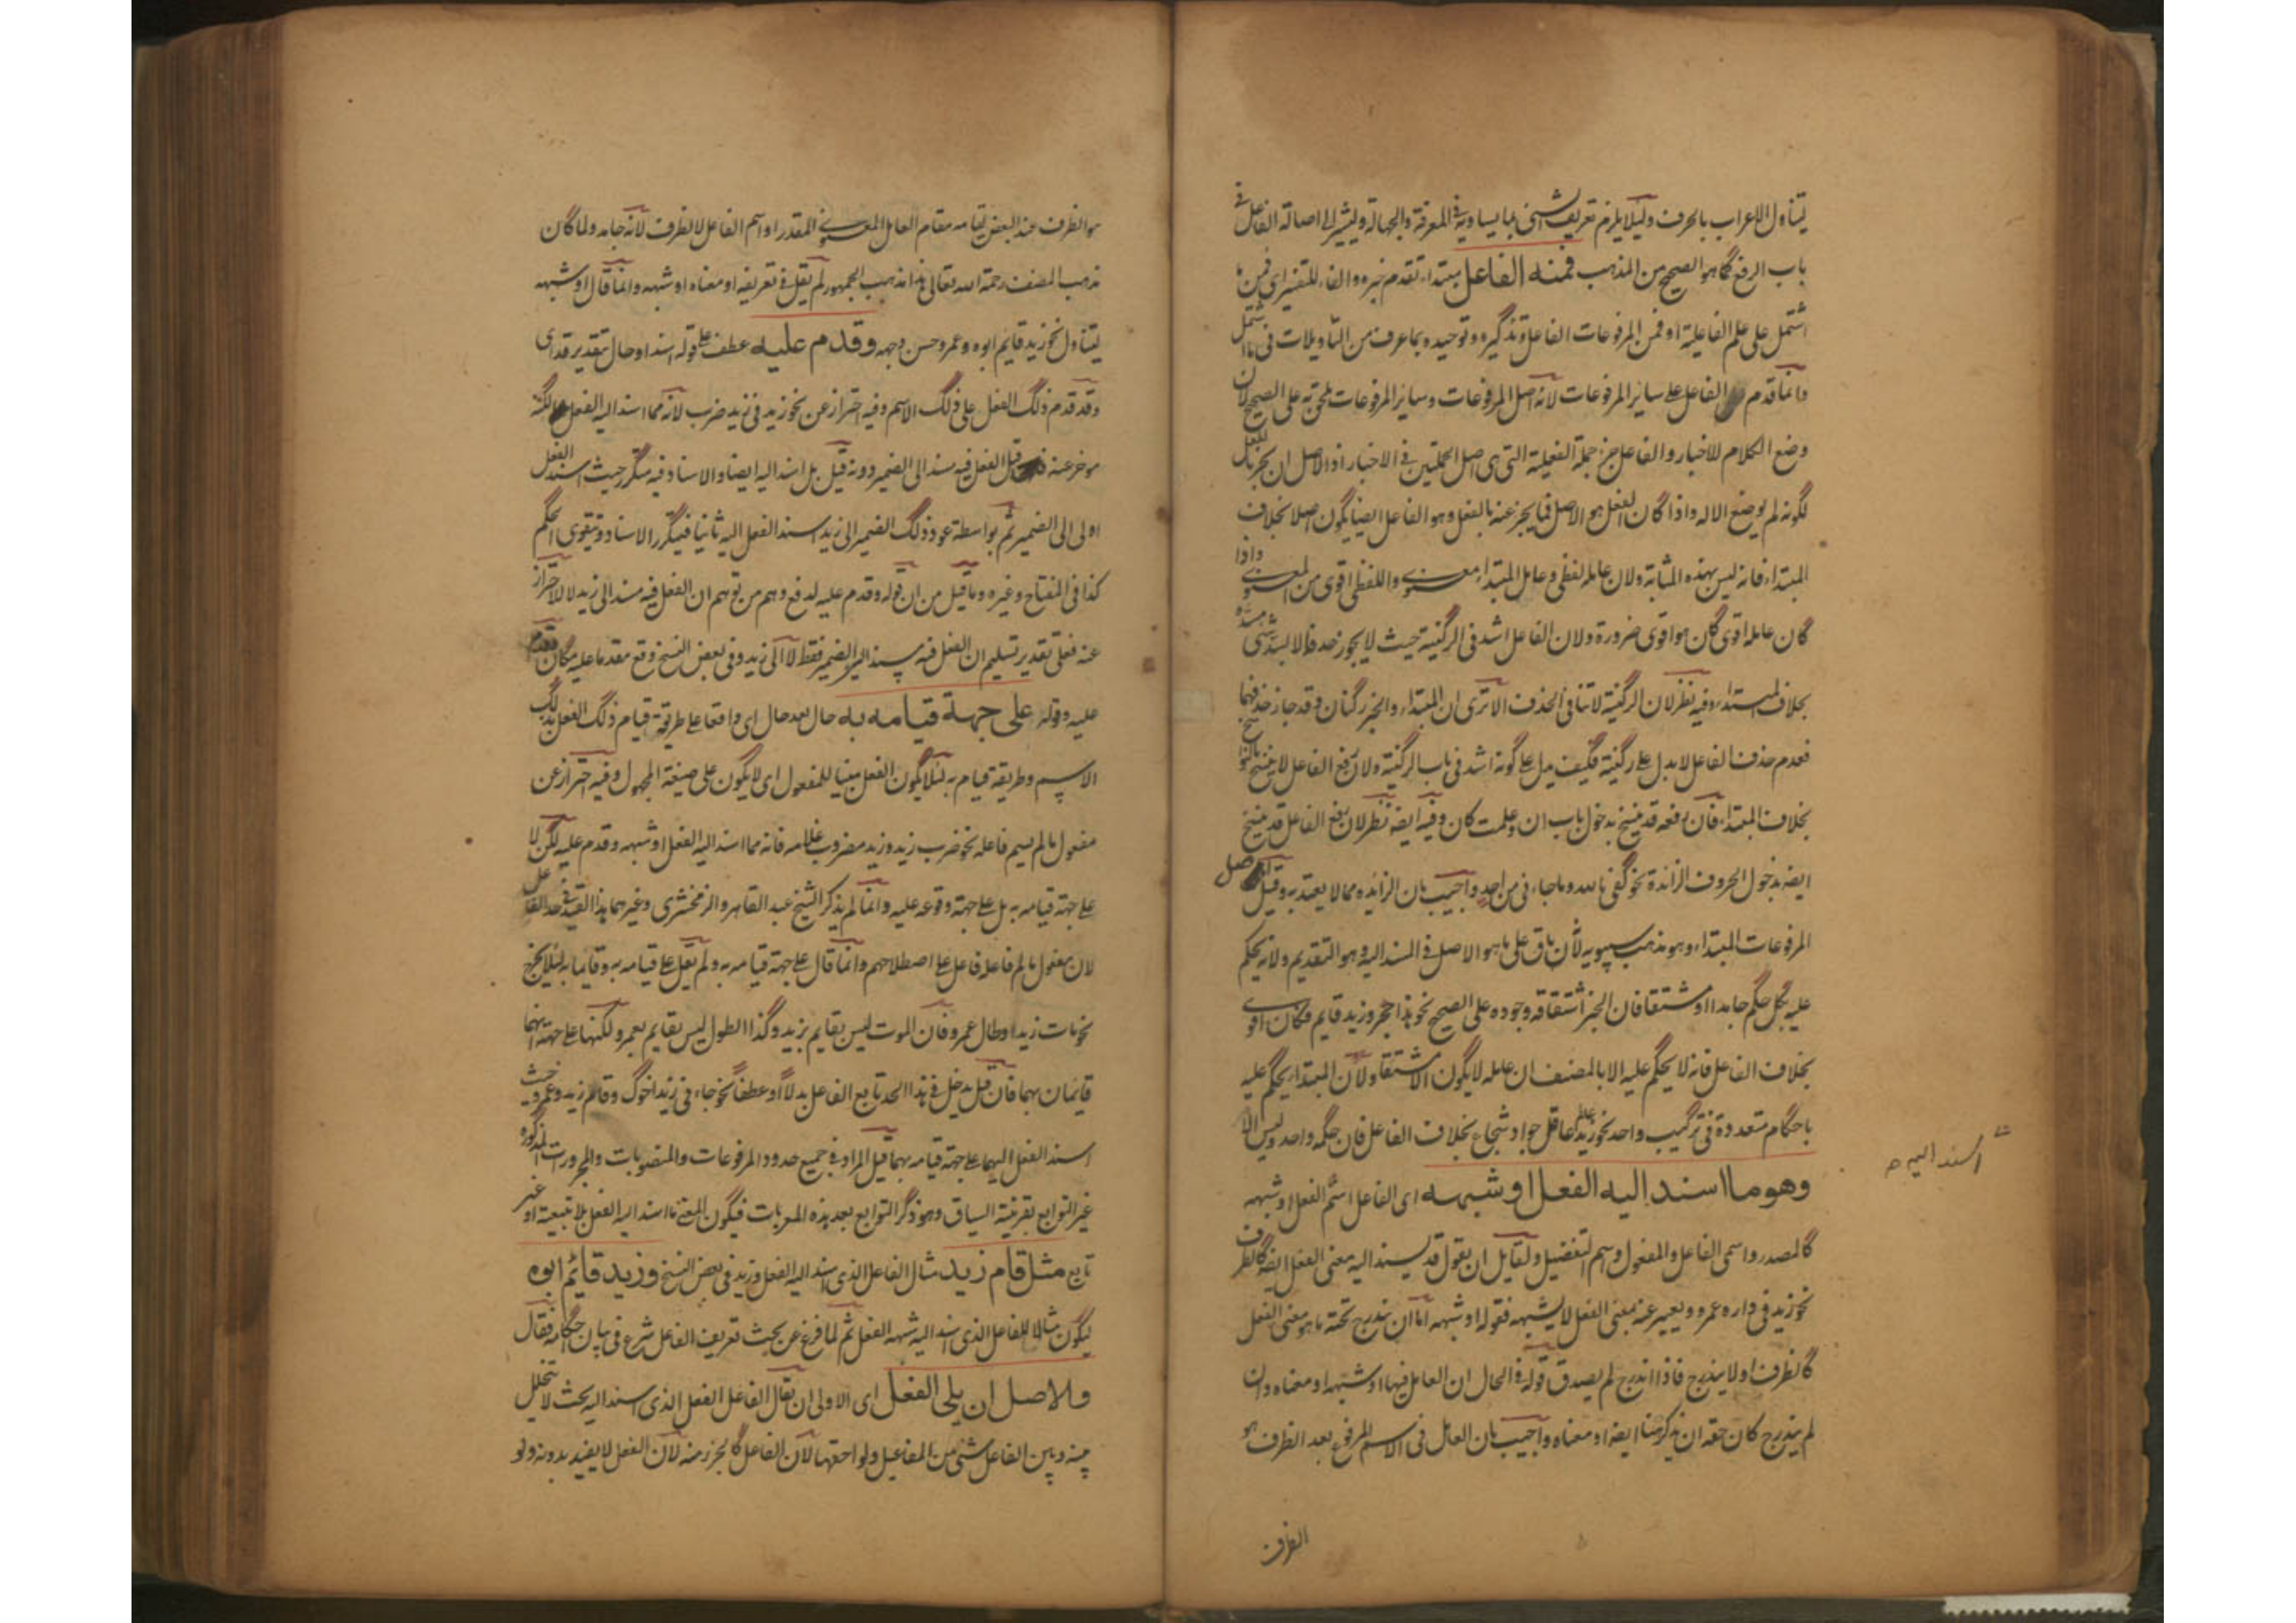 ليتناول الاعراب بالحرف ولئلا يلزم تعريف الشئ بما يساويه في المعرفة والجهالة وليشير الى اصالة الفاعل في
باب الرفع كما هو الصحيح من المذهب فمنه الفاعل مبتداء تقدم خبره والفاء للتفسير اى فمن ما
اشتمل على علم الفاعلية او فمن المرفوعات الفاعل وتذكيره وتوحيده بما عرف من التأويلات في ما اشتمل
وانما قدم الفاعل على ساير المرفوعات لانه اصل المرفوعات وساير المرفوعات ملحق به على الصحيح لان
وضع الكلام للاخبار والفاعل جزء جملة الفعلية التى هى اصل الجملتين في الاخبار اذ الاصل ان يخبر بالفعل
لكونه لم يوضع الا له واذا كان الفعل هو الاصل فما يخبر عنه بالفعل وهو الفاعل ايضا يكون اصلا بخلاف
المبتداء فانه ليس بهذه المثابة ولان عامله لفظى وعامل المبتداء معنوى واللفظى اقوى من المعنوى واذا
كان عامله اقوى كان هو اقوى ضرورة ولان الفاعل اشد فى الركنية حيث لا يجوز حذفه الا لبسد شئ مسده
بخلاف المبتداء وفيه نظر لان الركنية لا تنافى الحذف الا ترى ان المبتداء والخبر ركنان وقد جاز حذفهما
فعدم حذف الفاعل لا يدل على ركنيته فكيف يدل على كونه اشد فى باب الركنية ولان رفع الفاعل لا ينسخ بالنواسخ
بخلاف المبتداء فان رفعه قد ينسخ بدخول باب ان وعلمت كان وفيه ايضه نظر لان رفع الفاعل قد ينسخ
ايضه بدخول الحروف الزائدة نحو كفى بالله وما جاءنى من احد واجيب بان الزائدة مما لا يعتد به وقيل اصل
المرفوعات المبتداء وهو مذهب سيبويه لانه باق على ما هو الاصل في المسند اليه وهو التقديم ولانه يحكم
عليه بكل حكم جامدا او مشتقا فان الخبر اشتقاقه وجوده على الصحيح نحو هذا حجر وزيد قايم فكان اقوى
بخلاف الفاعل فانه لا يحكم عليه الا بالمصنف ان عامله لا يكون الا مشتقا ولان المبتداء يحكم عليه
باحكام متعددة فى تركيب واحد نحو زيد عالم عاقل جواد شجاع بخلاف الفاعل فان حكمه واحد وليس الا
وهو ما اسند اليه الفعل او شبهه اى الفاعل اسم الفعل او شبهه
اسند اليه
كالمصدر واسمى الفاعل والمفعول واسم التفضيل ولقايل ان يقول قد يسند اليه معنى الفعل ايضه كالظرف
نحو زيد فى داره عمرو ويعبر عنه بمعنى الفعل لا بشبهه فقوله او شبهه اما ان يندرج تحته ما هو معنى الفعل
كالظرف او لا يندرج فاذا اندرج لم يصدق قوله فى الحال ان العامل فيها او شبهه او معناه وان
لم يندرج كان حقه ان يذكر هنا ايضه او معناه واجيب بان العامل فى الاسم المرفوع بعد الظرف هو
الظرف
هو الظرف عند البعض لقيامه مقام العامل المعنوى المقدر او اسم الفاعل لا الظرف لانه جامد ولما كان
مذهب المصنف رحمة الله تعالى هذا مذهب الجمهور لم يقل فى تعريفه او معناه او شبهه وانما قال او شبهه
ليتناول نحو زيد قايم ابوه وعمرو حسن وجهه وقدم عليه عطف على قوله اسند او حال بتقدير قد اى
وقد قدم ذلك الفعل على ذلك الاسم وفيه احتراز عن نحو زيد فى زيد ضرب لانه مما اسند اليه الفعل لكنه
موخر عنه قيل الفعل فيه مسند الى الضمير دونه قيل بل اسند اليه ايضا والاسناد فيه متكرر حيث اسند الفعل
اولى الى الضمير ثم بواسطة عود ذلك الضمير الى زيد اسند الفعل اليه ثانيا فيتكرر الاسناد ويتقوى الحكم
كذا فى المفتاح وغيره وما قيل من ان قوله وقدم عليه لدفع وهم من توهم ان الفعل فيه مسند الى زيد لا للاحتراز
عنه فعلى تقدير تسليم ان الفعل فيه يسند الى الضمير فقط لا الى زيد وفى بعض النسخ وقع مقدما عليه مكان قدم
عليه وقوله على جهة قيامه به حال بعد حال اى واقعا على طريقة قيام ذلك الفعل بذلك
الاسم وطريقة قيام به لئلا يكون الفعل مبنيا للمفعول اى لا يكون على صيغة المجهول وفيه احتراز عن
مفعول ما لم يسم فاعله نحو ضرب زيد وزيد مضروب غلامه فانه مما اسند اليه الفعل او شبهه وقدم عليه لكن لا
على جهة قيامه به بل على جهة وقوعه عليه وانما لم يذكر الشيخ عبد القاهر والزمخشرى وغيرهما هذا القيد فى حد الفاعل
لان مفعول ما لم فاعله فاعل على اصطلاحهم وانما قال على جهة قيامه به ولم يقل على قيامه به وقايما به لئلا يخرج
نحو مات زيد او طال عمرو فان الموت ليس بقايم بزيد وكذا الطول ليس بقايم بعمرو لكنها على جهة انهما
قايمان بهما فان قيل يدخل فى هذا الحد تابع الفاعل بدلا او عطفا نحو جاءنى زيد اخوك وقام زيد وعمرو حيث
اسند الفعل اليهما على جهة قيامه بهما قيل المراد فى جميع حدود المرفوعات والمنصوبات والمجرورات المذكورة
غير التوابع بقرينة السياق وهو ذكر التوابع بعد هذه المعربات فيكون المعنى ما اسند اليه الفعل بلا تبعية او غير
تابع مثل قام زيد مثال الفاعل الذى اسند اليه الفعل وزيد فى بعض النسخ وزيد قائم ابوه
ليكون مثالا للفاعل الذى اسند اليه شبهه الفعل ثم لما فرغ عن بحث تعريف الفاعل شرع فى بيان احكامه فقال
والاصل ان يلى الفعل اى الاولى ان يقال الفاعل الفعل الذى اسند اليه بحيث لا يتخلل
بينه وبين الفاعل شئ من المفاعيل ولواحقها لان الفاعل كالجزء منه لان الفعل لا يفيد بدونه ولو